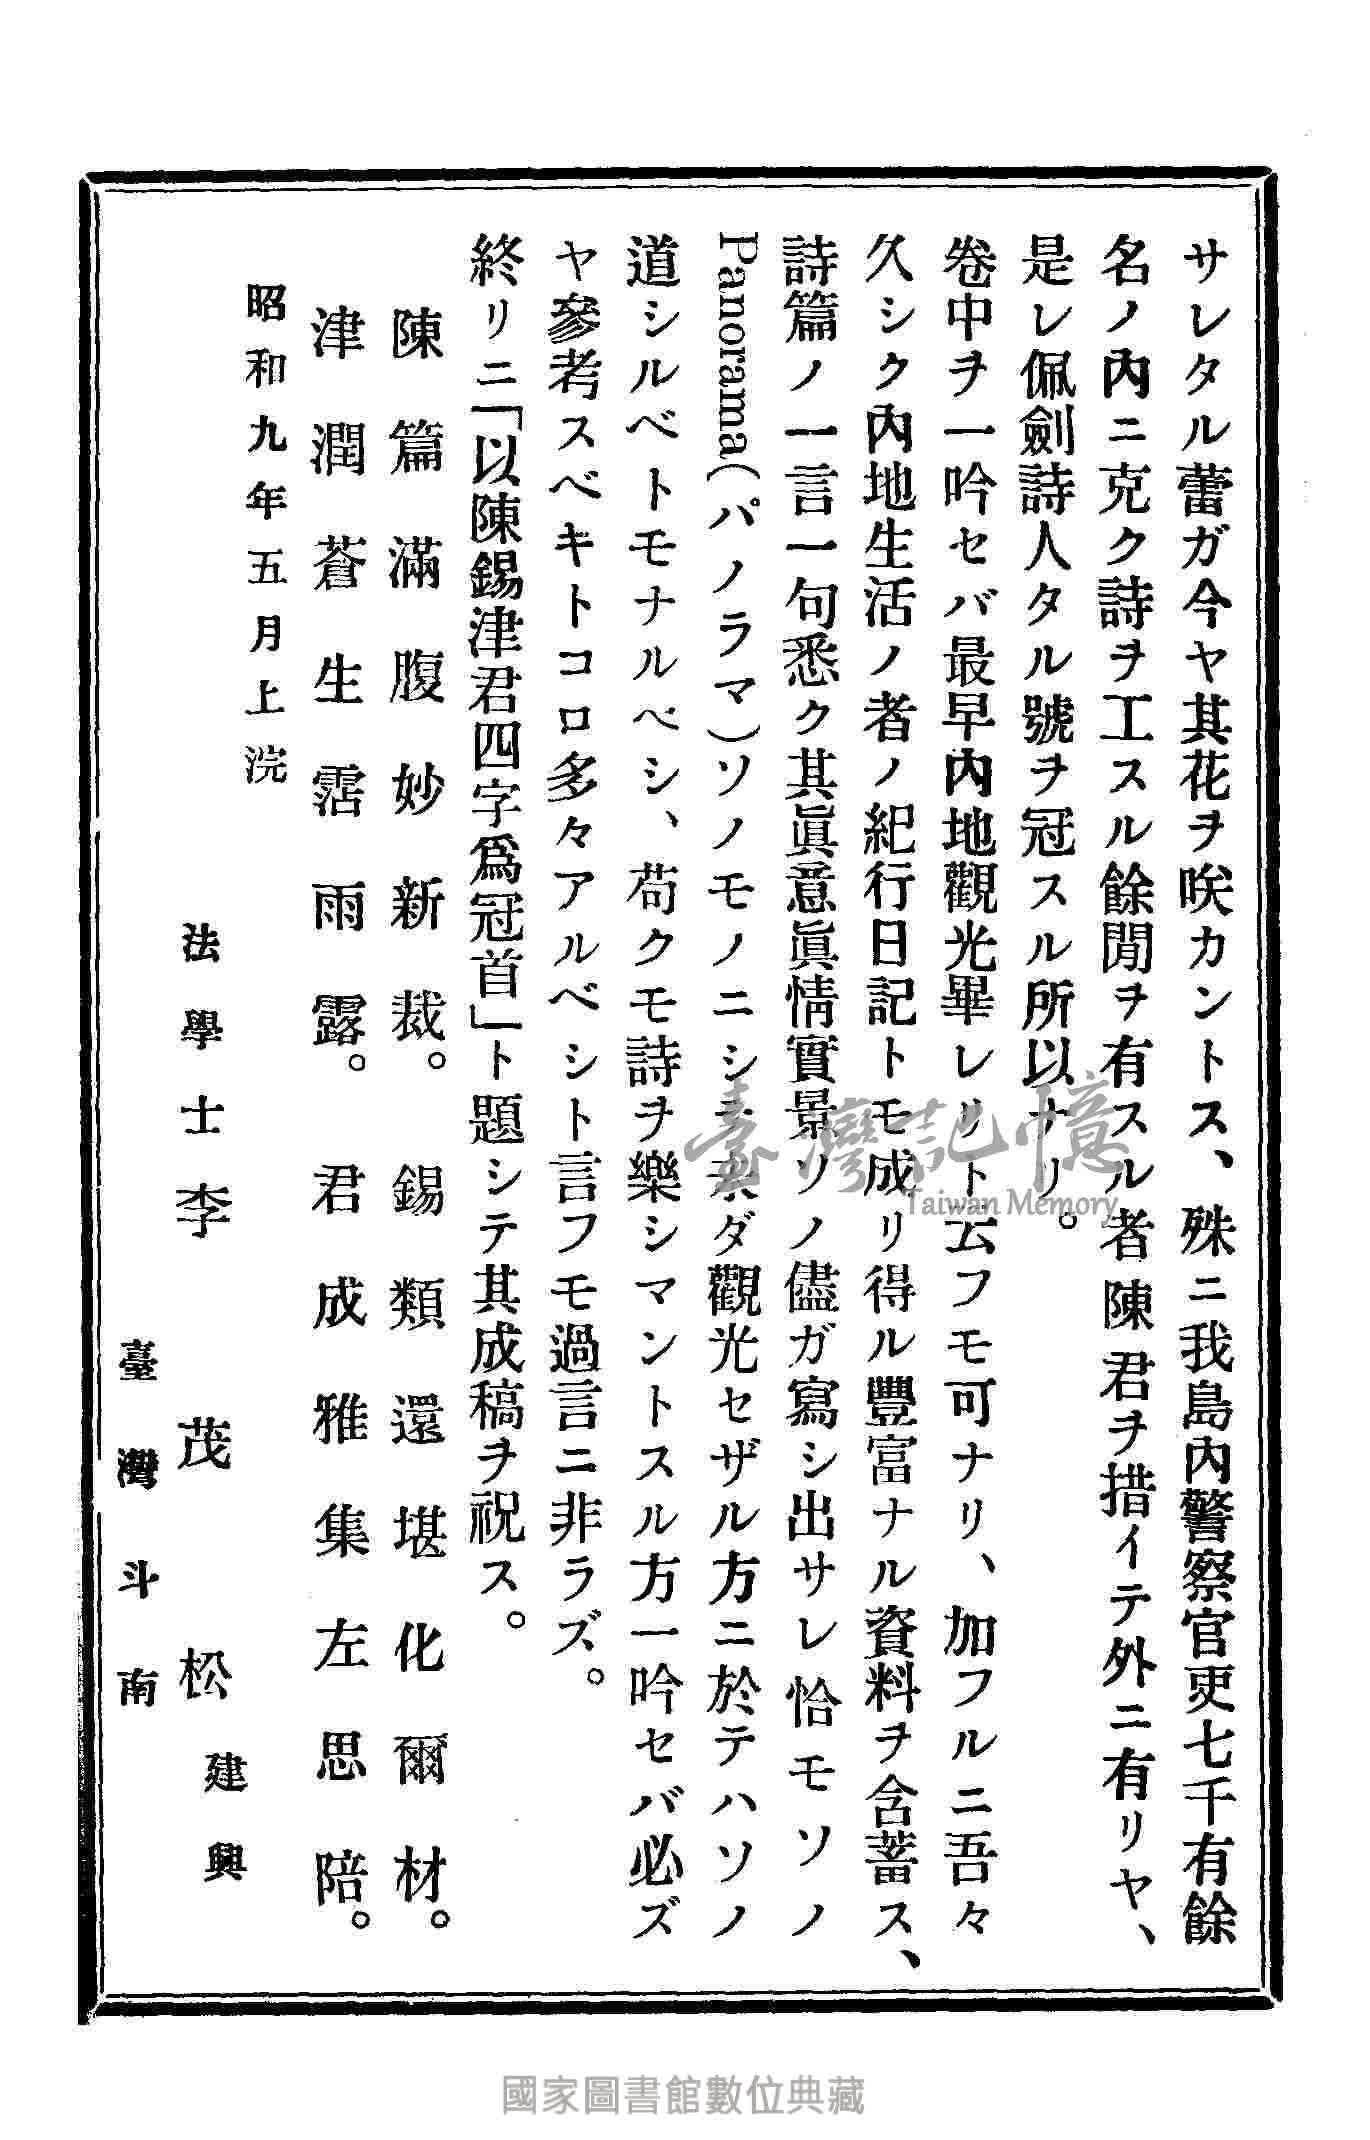 サレタル蕾ガ今ヤ其花ヲ咲カントス、殊ニ我島內警察官吏七千有餘
名ノ內ニ克ク詩ヲ工スル餘閒ヲ有スル者陳君ヲ措イテ外ニ有リヤ、
是レ佩劍詩人タル號ヲ冠スル所以ナリ。
卷中ヲ一吟セバ最早內地觀光畢レリト云フモ可ナリ、加フルニ吾々
久シク內地生活ノ者ノ紀行日記トモ成リ得ル豐富ナル資料ヲ含蓄ス、
詩篇ノ一言一句悉ク其眞意眞情實景ソノ儘ガ寫シ出サレ恰モソノ
Panorama(パノラマ)ソノモノニシテ未ダ觀光セザル方ニ於テハソノ
道シルベトモナルベシ、苟クモ詩ヲ樂シマントスル方一吟セバ必ズ
ヤ參考スベキトコロ多々アルベシト言フモ過言ニ非ラズ。
終リニ「以陳錫津君四字爲冠首」ト題シテ其成稿ヲ祝ス。
陳篇滿腹妙新裁。錫類還堪化爾材。
津潤蒼生霑雨露。君成雅集左思陪。
昭和九年五月上浣
法學士李茂松建興
臺灣斗南
臺灣記憶
Taiwan Memory
國家圖書館數位典藏